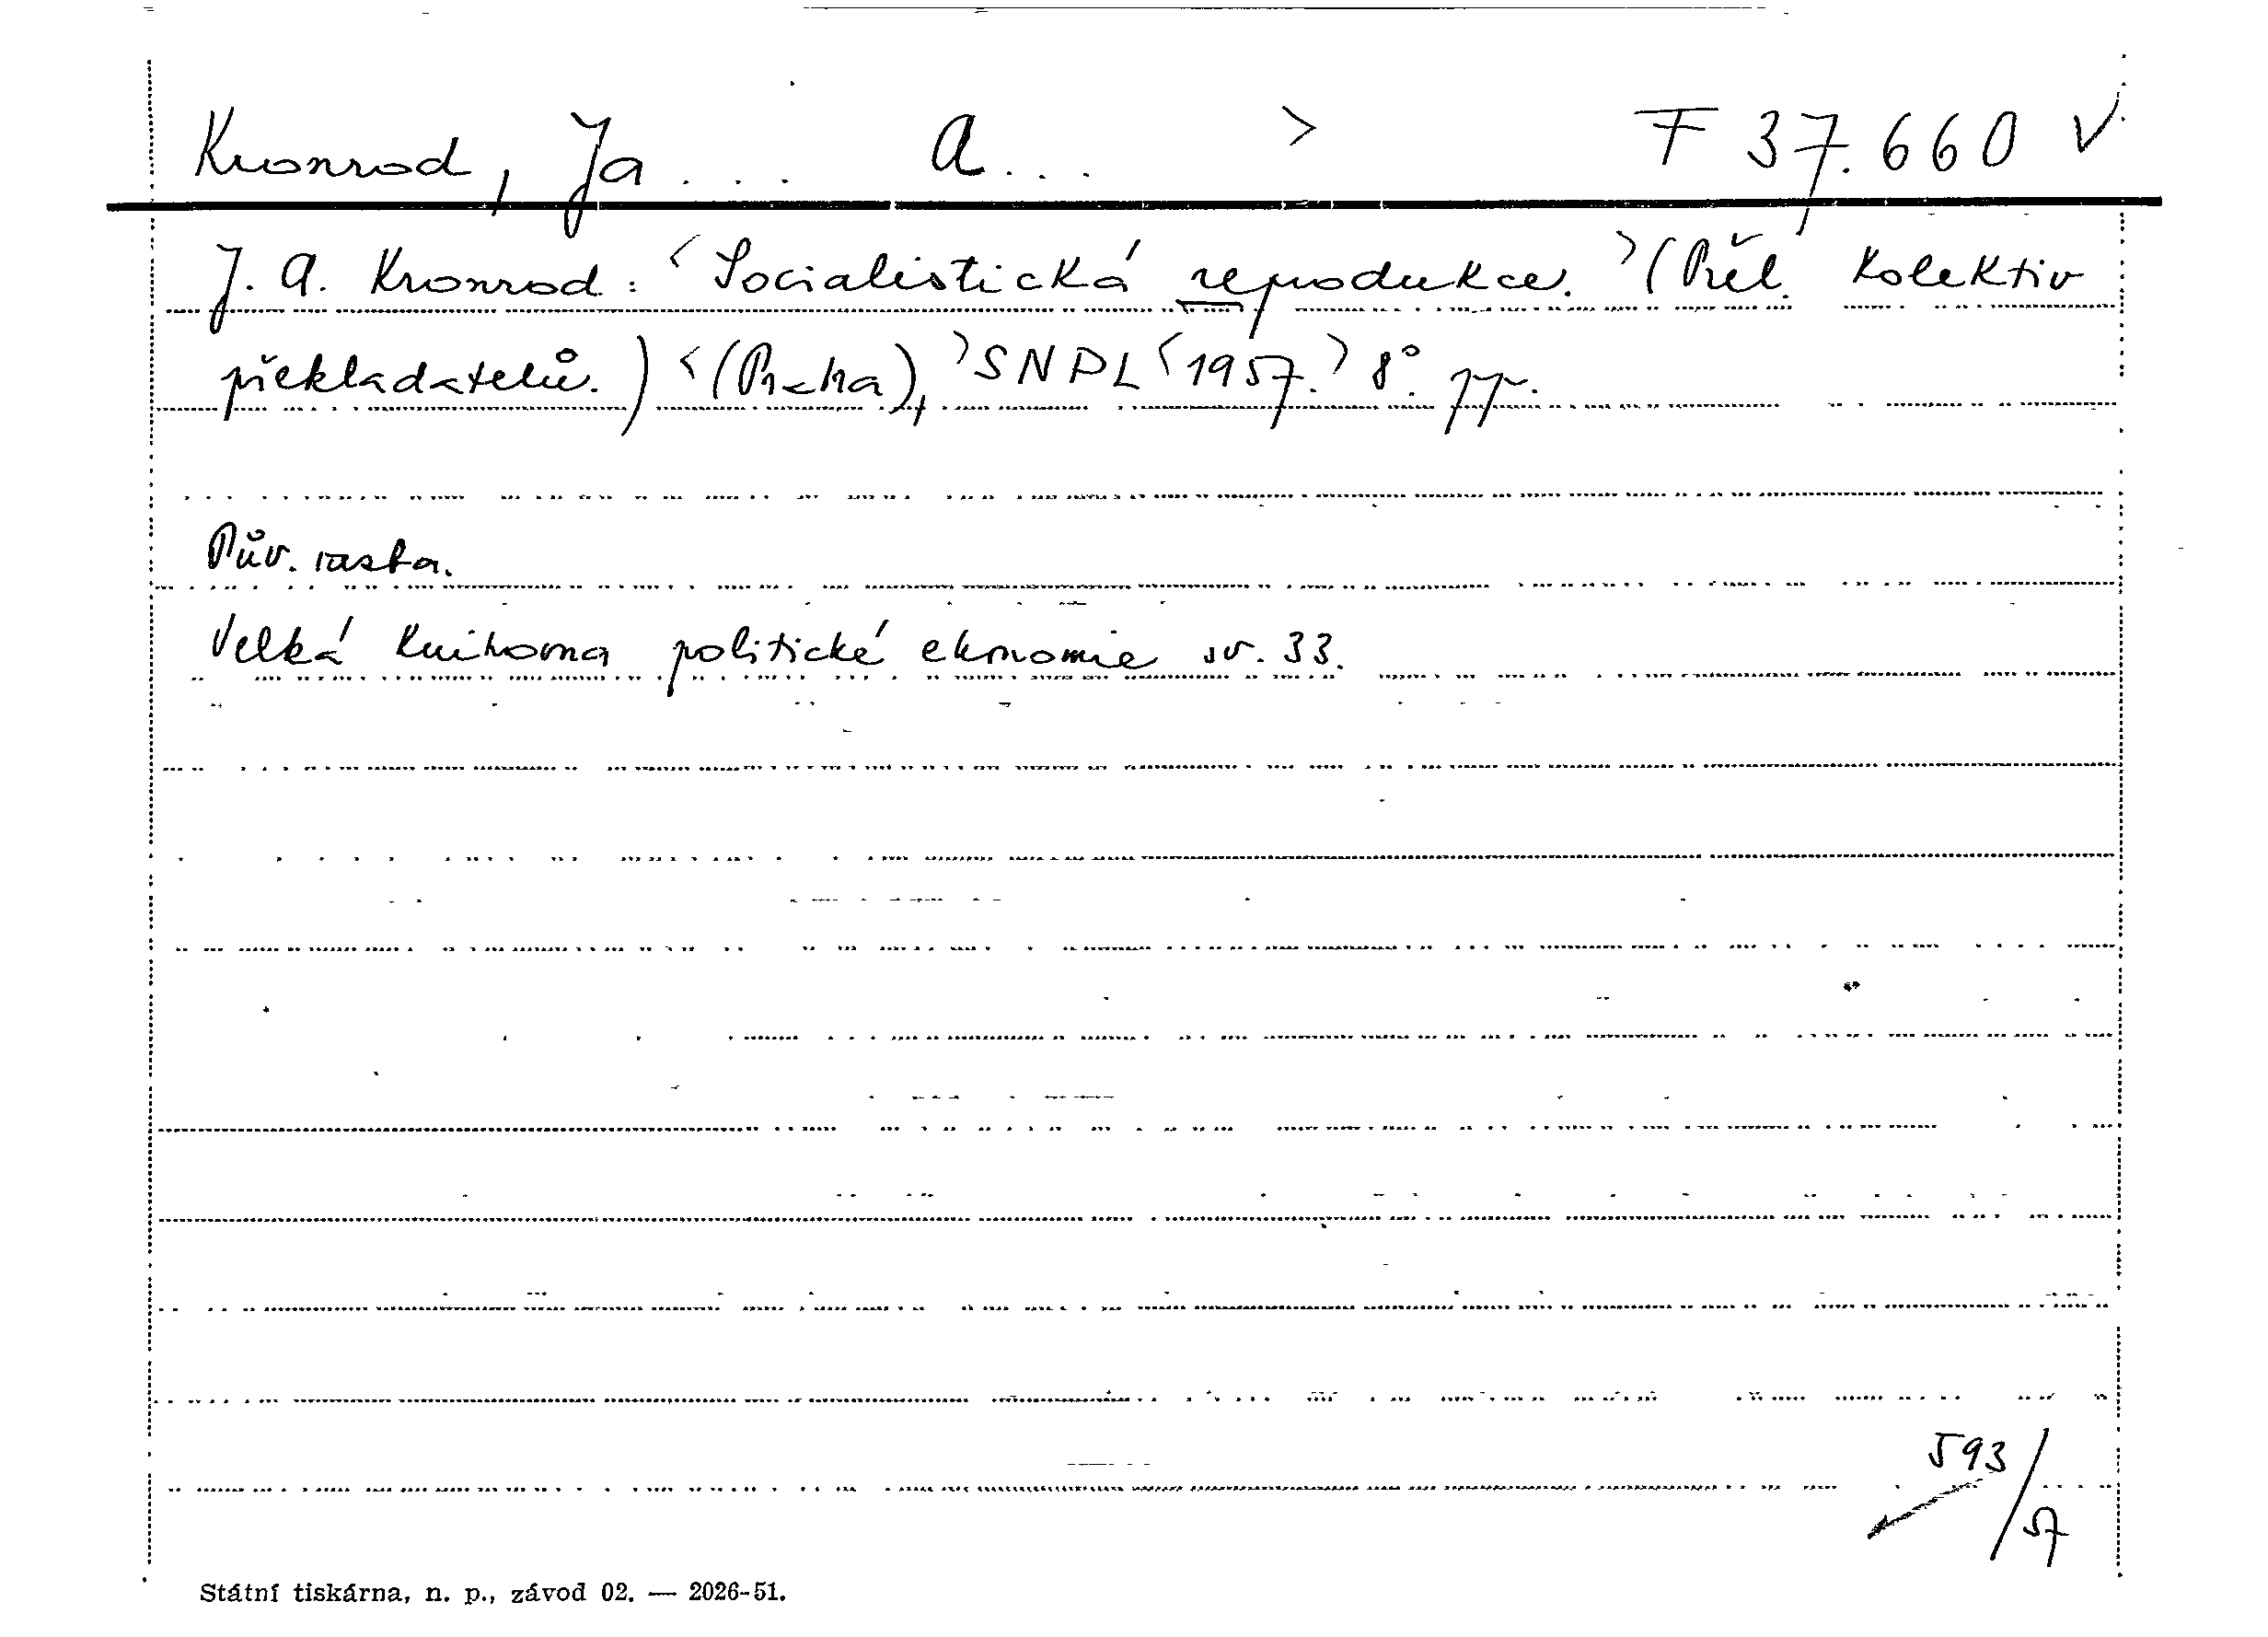 Kronrod, Ja... A... > F 37.660 V
J. A. Kronrod: <Socialistická reprodukce.> (Přel. Kolektiv
překladatelů.) <(Praha), >SNPL <1957.> 8°. pp.
Pův. vazba.
Velká knihovna politické ekonomie sv. 33.
593/57
Státní tiskárna, n. p., závod 02. — 2026-51.